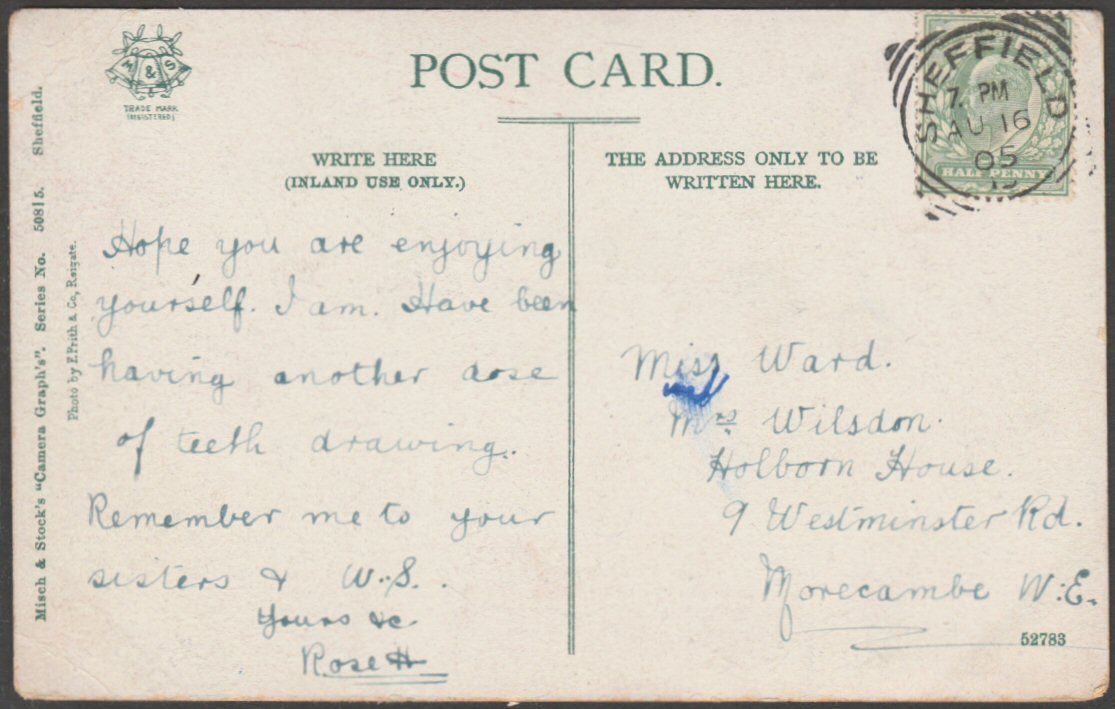 M & S
TRADE MARK
(REGISTERED)
POST CARD.
SHEFFIELD
7. PM
AU 16
05
HALF PENNY
WRITE HERE
(INLAND USE ONLY.)
THE ADDRESS ONLY TO BE
WRITTEN HERE.
Misch & Stock's "Camera Graph's". Series No. 50815. Sheffield.
Photo by F. Frith & Co, Reigate.
Hope you are enjoying
yourself. I am. Have been
having another dose
of teeth drawing.
Remember me to your
sisters & W.S.
Yours &c
Rose H
Miss Ward.
Mrs Wilsdon.
Holborn House.
9 Westminster Rd.
Morecambe W.E.
52783